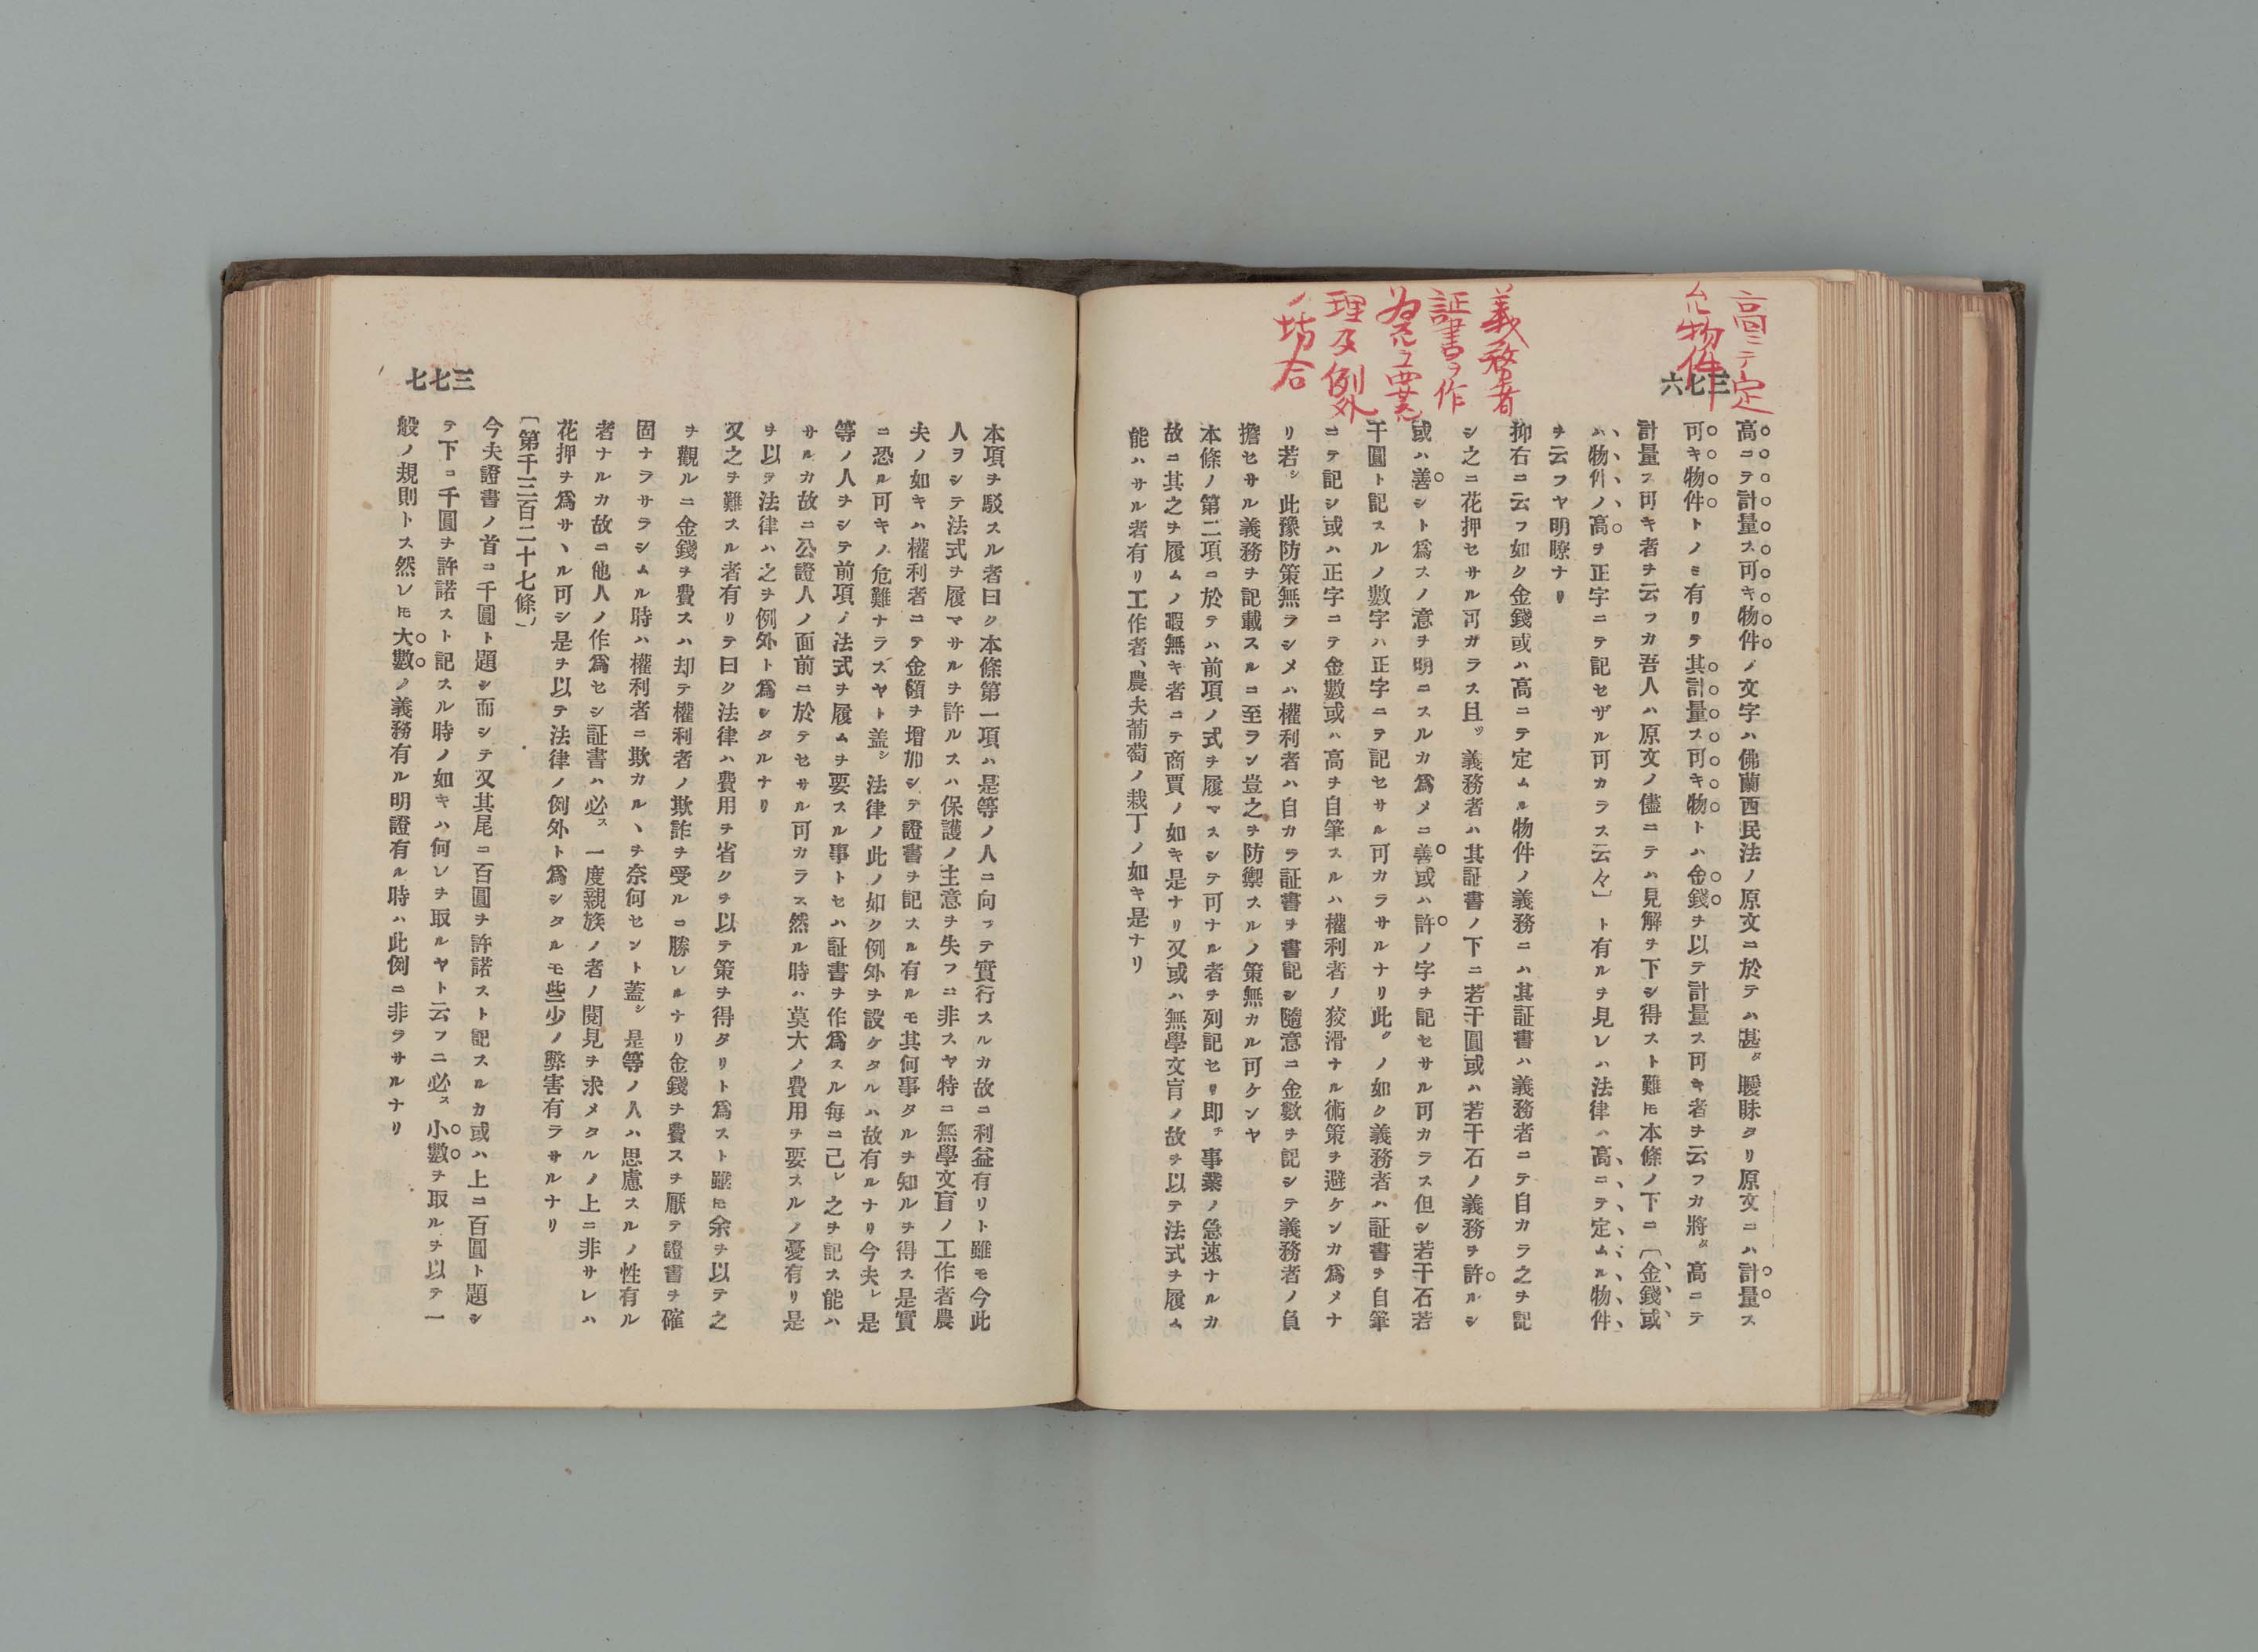 高ニテ定
ムル物件
義務者
証書ヲ作
理及例外
ノ場合
三七六
高ニテ計量ス可キ物件ノ文字ハ佛蘭西民法ノ原文ニ於テハ甚タ曖昧タリ原文ニハ計量ス
可キ物件トノミ有リテ其計量ス可キ物トハ金錢ヲ以テ計量ス可キ者ヲ云フカ將タ高ニテ
計量ス可キ者ヲ云フカ吾人ハ原文ノ儘ニテハ見解ヲ下シ得スト雖モ本條ノ下ニ〔金錢或
ハ物件ノ高ヲ正字ニテ記セザル可カラス云々〕ト有ルヲ見レハ法律ハ高ニテ定ムル物件
ヲ云フヤ明瞭ナリ
抑右ニ云フ如ク金錢或ハ高ニテ定ムル物件ノ義務ニハ其証書ハ義務者ニテ自カラ之ヲ記
シ之ニ花押セサル可ガラス且ツ義務者ハ其証書ノ下ニ若干圓或ハ若干石ノ義務ヲ許ルシ
或ハ善シト爲スノ意ヲ明ニスルカ爲メニ善或ハ許ノ字ヲ記セサル可カラス但シ若干石若
干圓ト記スルノ數字ハ正字ニテ記セサル可カラサルナリ此クノ如ク義務者ハ証書ヲ自筆
ニテ記シ或ハ正字ニテ金數或ハ高ヲ自筆スルハ權利者ノ狡滑ナル術策ヲ避ケンカ爲メナ
リ若シ此豫防策無ラシメハ權利者ハ自カラ証書ヲ書記シ隨意ニ金數ヲ記シテ義務者ノ負
擔セサル義務ヲ記載スルニ至ラン豈之ヲ防禦スルノ策無カル可ケンヤ
本條ノ第二項ニ於テハ前項ノ式ヲ履マスシテ可ナル者ヲ列記セリ即チ事業ノ急速ナルカ
故ニ其之ヲ履ムノ暇無キ者ニテ商賈ノ如キ是ナリ又或ハ無學文盲ノ故ヲ以テ法式ヲ履ム
能ハサル者有リ工作者、農夫葡萄ノ栽丁ノ如キ是ナリ
三七七
本項ヲ駁スル者曰ク本條第一項ハ是等ノ人ニ向ツテ實行スルカ故ニ利益有リト雖モ今此
人ヲシテ法式ヲ履マサルヲ許ルスハ保護ノ主意ヲ失フニ非スヤ特ニ無學文盲ノ工作者農
夫ノ如キハ權利者ニテ金額ヲ增加シテ證書ヲ記スル有ルモ其何事タルヲ知ルヲ得ス是實
ニ恐ル可キノ危難ナラズヤト盖シ法律ノ此ノ如ク例外ヲ設ケタルハ故有ルナリ今夫レ是
等ノ人ヲシテ前項ノ法式ヲ履ムヲ要スル事トセハ証書ヲ作爲スル每ニ己レ之ヲ記ス能ハ
サルカ故ニ公證人ノ面前ニ於テセサル可カラス然ル時ハ莫大ノ費用ヲ要スルノ憂有リ是
ヲ以テ法律ハ之ヲ例外ト爲シタルナリ
又之ヲ難スル者有リテ曰ク法律ハ費用ヲ省クヲ以テ策ヲ得タリト爲スト雖モ余ヲ以テ之
ヲ觀ルニ金錢ヲ費スハ却テ權利者ノ欺詐ヲ受ルニ勝レルナリ金錢ヲ費スヲ厭テ證書ヲ確
固ナラサラシムル時ハ權利者ニ欺カルヽヲ奈何セント蓋シ是等ノ人ハ思慮スルノ性有ル
者ナルカ故ニ他人ノ作爲セシ証書ハ必ス一度親族ノ者ノ閱見ヲ求メタルノ上ニ非サレハ
花押ヲ爲サヽル可シ是ヲ以テ法律ノ例外ト爲シタルモ些少ノ弊害有ラサルナリ
〔第千三百二十七條〕
今夫證書ノ首ニ千圓ト題シ而シテ又其尾ニ百圓ヲ許諾スト記スルカ或ハ上ニ百圓ト題シ
テ下ニ千圓ヲ許諾スト記スル時ノ如キハ何レヲ取ルヤト云フニ必ス小數ヲ取ルヲ以テ一
般ノ規則トス然レ𪜈大數ノ義務有ル明證有ル時ハ此例ニ非ラサルナリ